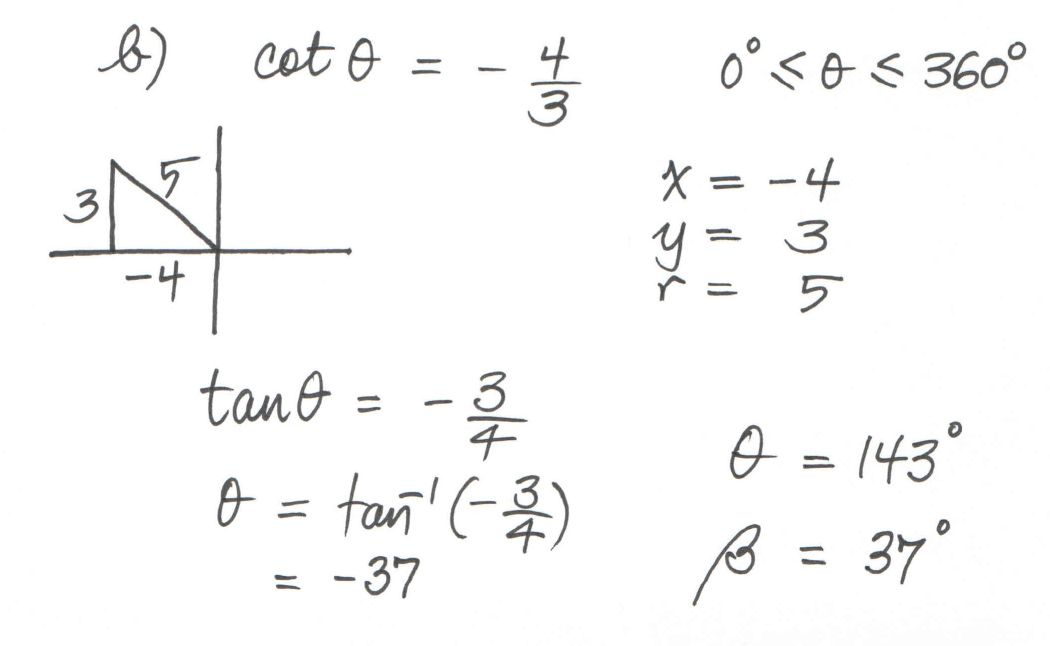 b) cot θ = - 4/3 0° ≤ θ ≤ 360°
3 5
-4
x = -4
y = 3
r = 5
tan θ = - 3/4
θ = tan⁻¹(-3/4)
= -37
θ = 143°
β = 37°